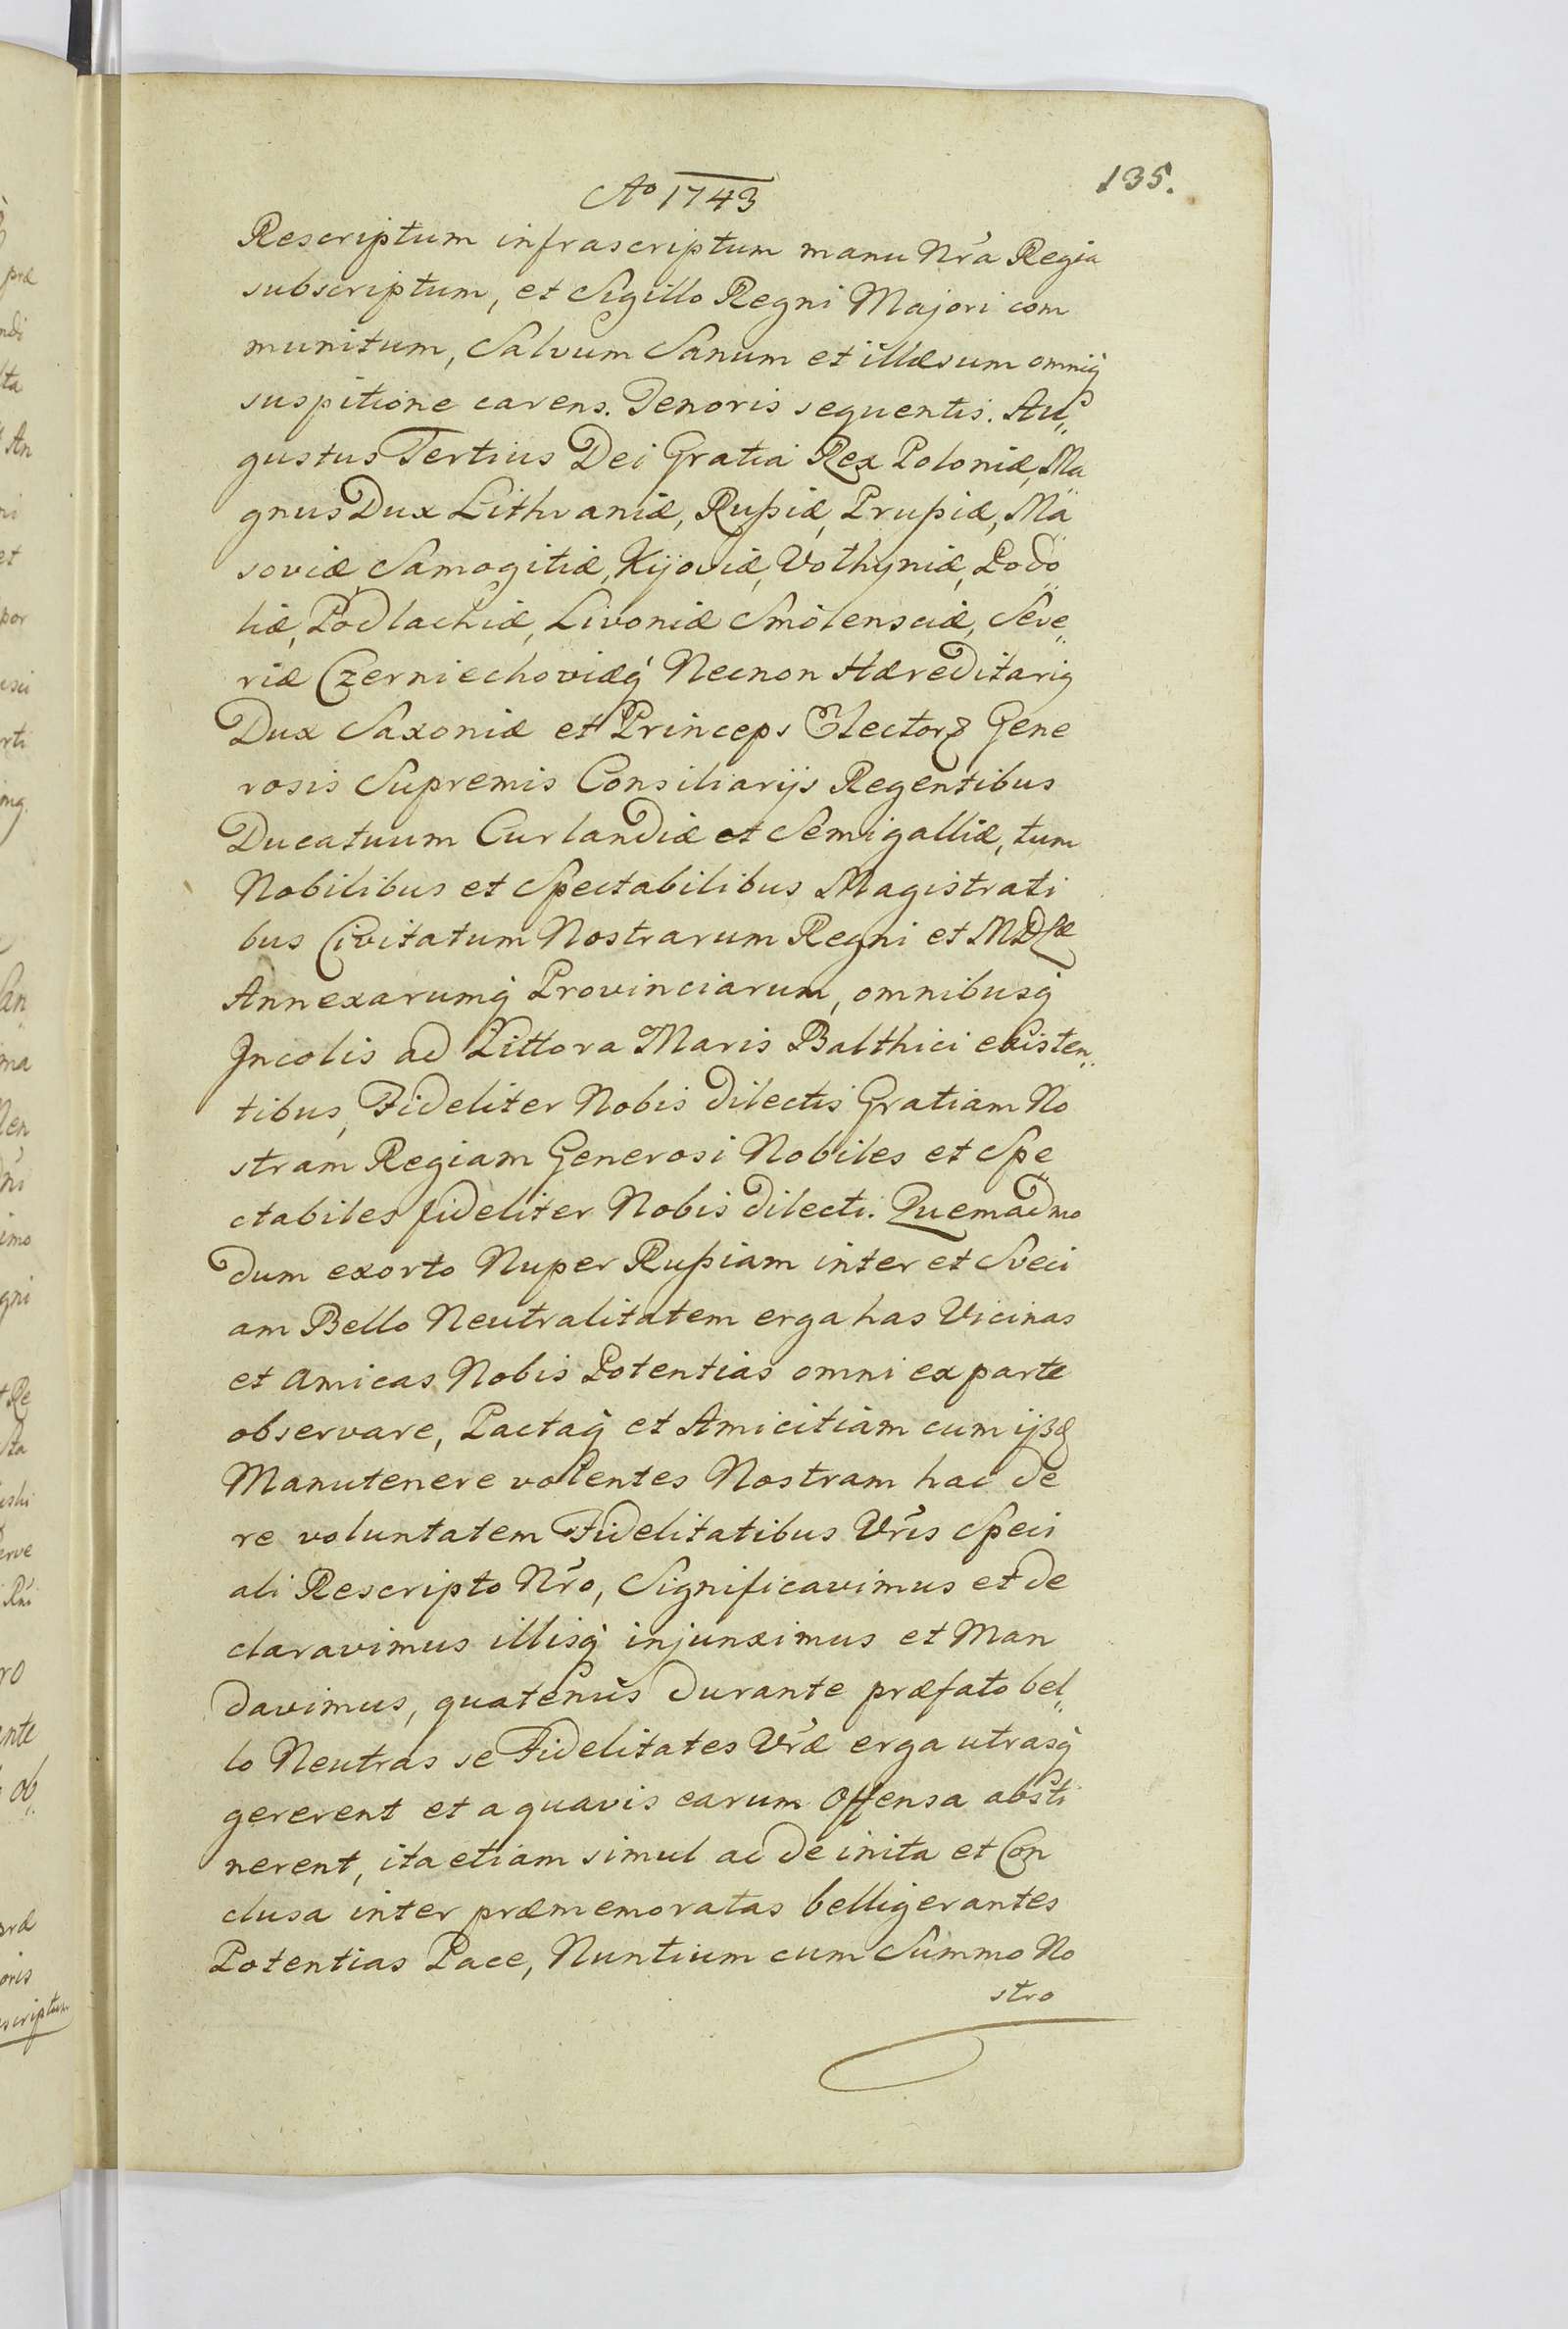 135.
Ao 1743
Rescriptum infrascriptum manu Nr̃a Regia
subscriptum, et Sigillo Regni Majori com
munitum, Salvum Sanum et illæsum omniq́
suspitione carens. Tenoris sequentis. Au„
gustus Tertius Dei Gratia Rex Poloniæ, Ma„
gnus Dux Lithvaniæ, Rußiæ, Prußiæ, Ma„
soviæ Samogitiæ, Kijoviæ, Volhyniæ, Podo„
liæ, Podlachiæ, Livoniæ Smolensciæ, Seve„
riæ Czerniechoviæq́ Necnon Hæreditarig
Dux Saxoniæ et Princeps Elector &c Gene
rosis Supremis Consiliarijs Regentibus
Ducatuum Curlandiæ et Semigalliæ, tum
Nobilibus et Spectabilibus Magistrati
bus Civitatum Nostrarum Regni et MDLæ
Annexarumq́ Provinciarum, omnibusq́
Incolis ad Littora Maris Balthici existen„
tibus, Fideliter Nobis dilectis Gratiam No
stram Regiam Generosi Nobiles et Spe„
ctabiles fideliter Nobis dilecti. Quemadmo
dum exorto Nuper Rußiam inter et Sveci
am Bello Neutralitatem erga has Vicinas
et Amicas Nobis Potentias omni ex parte
observare, Pactaq́ et Amicitiam cum ijsd
Manutenere volentes Nostram hac de
re voluntatem Fidelitatibus Vr̃is Speci
ali Rescripto Nr̃o, Significavimus et de
claravimus illisq́ injunximus et Man
davimus, quatenùs durante præfato bel„
lo Neutras se Fidelitates Vr̃æ erga utrasq́
gererent et a quavis earum Offensa absti
nerent, ita etiam simul ac de inita et Con
clusa inter præmemoratas belligerantes
Potentias Pace, Nuntium cum Summo No
stro